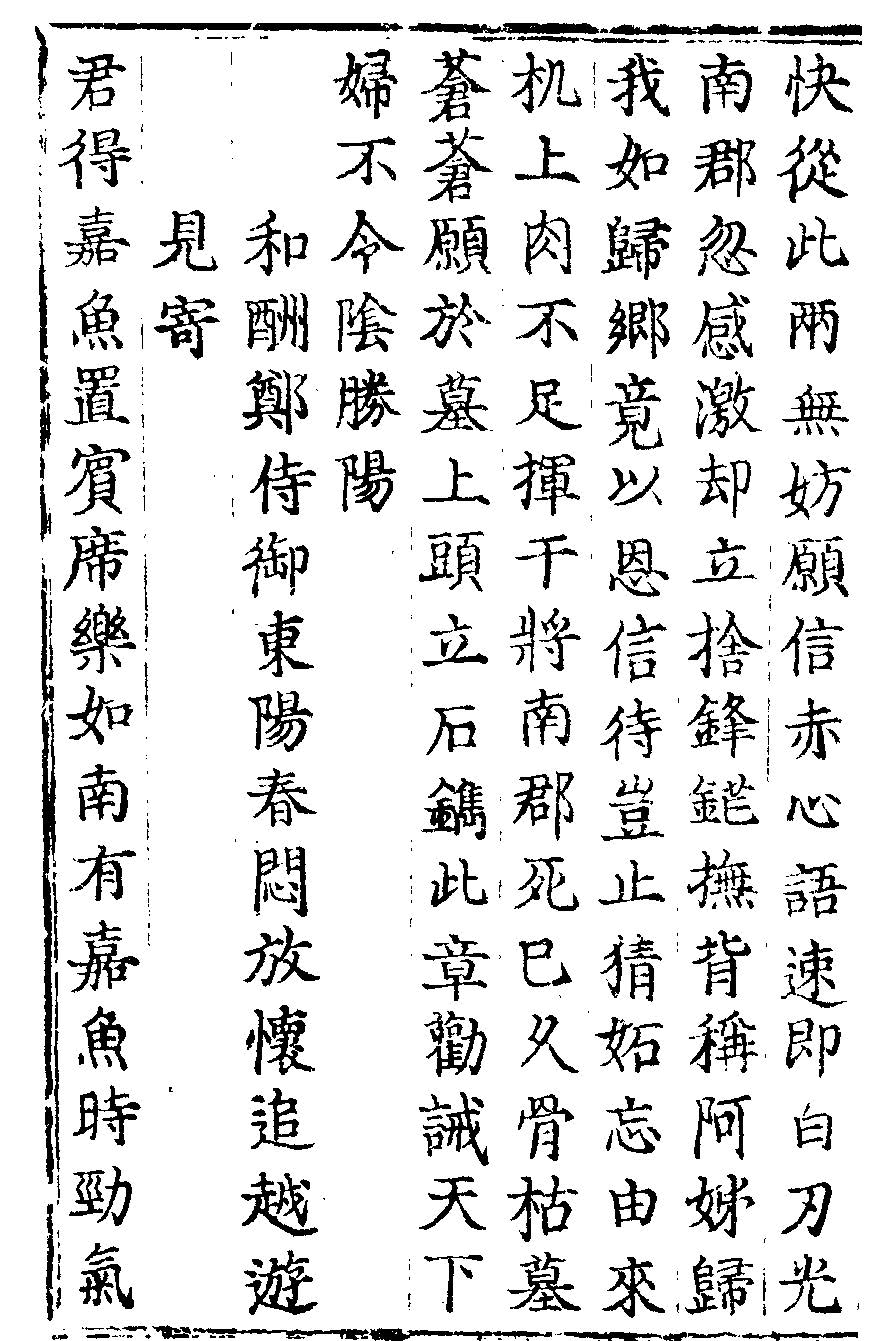 快從此兩無妨願信赤心語速即白刃光
南郡忽感激却立捨鋒鋩撫背稱阿姊歸
我如歸鄉竟以恩信待豈止猜妬忘由來
机上肉不足揮干將南郡死巳久骨枯墓
蒼蒼願於墓上頭立石鐫此章勸誡天下
婦不令陰勝陽
和酬鄭侍御東陽春悶放懷追越遊
見寄
君得嘉魚置賓席樂如南有嘉魚時勁氣